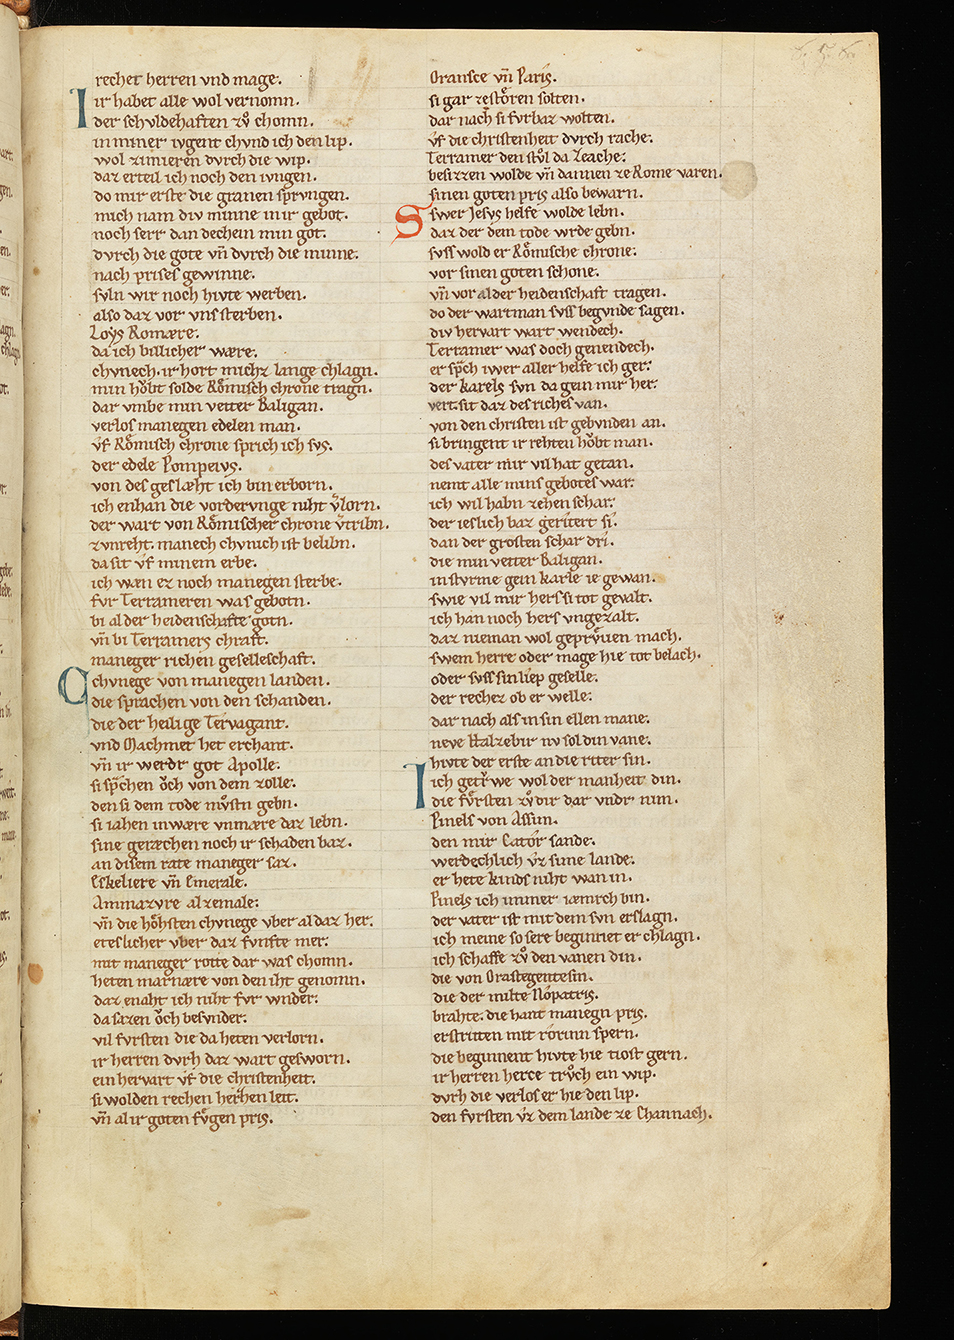 rechet herren vnd mage.
Ir habet alle wol vernomn.
der schvldehaften zv̊ chomn.
in miner ivgent chvnd ich den lip.
wol zimieren dvrch die wip.
daz erteil ich noch den ivngen.
do mir erste die granen sprvngen.
mich nam div minne in ir gebot.
noch serr dan dechein min got.
dvrch die gote vn̄ dvrch die minne.
nach prises gewinne.
svln wir noch hivte werben.
also daz vor vns sterben.
Loẏs Romære.
da ich billicher wære.
chvnech. ir hort michz lange chlagn.
min hǒbt solde Rǒmisch chrone tragn.
dar vmbe min vetter Baligan.
verlos manegen edelen man.
vf Rǒmisch chrone sprich ich svs.
der edele Pompeivs.
von des geslæht ich bin erborn.
ich enhan die vordervnge niht v̓lorn.
der wart von Rǒmischer chrone v̓tribn.
zvnreht. manech chvnich ist belibn.
da sit vf minem erbe.
ich wæn ez noch manegen sterbe.
fvr Terrameren was gebotn.
bi al der heidenschafte gotn.
vn̄ bi Terramers chraft.
maneger richen geselleschaft.
Chvnege von manegen landen.
die sprachen von den schanden.
die der heilige Tervagant.
vnd Machmet het erchant.
vn̄ ir werdr got Apolle.
si sp̄chen ǒch von dem zolle.
den si dem tode mv̊stn gebn.
si iahen in wære vnmære daz lebn.
sine geræchen noch ir schaden baz.
an disem rate maneger saz.
Eskeliere vn̄ Emerale.
Ammazvre al zemale:
vn̄ die hǒhsten chvnege vber al daz her.
eteslicher vber daz fvnfte mer.
mit maneger rotte dar was chomn.
heten marnære von den iht genomn.
daz enaht ich niht fvr wnder.
da sazen ǒch besvnder.
vil fvrsten die da heten verlorn.
ir herren dvrh daz wart gesworn.
ein hervart vf die christenheit.
si wolden rechen herhen leit.
vn̄ al ir goten fv̊gen pris.
Oransce vn̄ Paris.
si gar zestǒren solten.
dar nach si fvrbaz wolten.
vf die christenheit dvrch rache.
Terramer den stv̊l da zeache.
besizzen wolde vn̄ dannen ze Rome varen.
sinen goten pris also bewarn.
Swer Jesvs helfe wolde lebn.
daz der dem tode wrde gebn.
svss wold er Rǒmische chrone.
vor sinen goten schone.
vn̄ vor al der heidenschaft tragen.
do der wartman svss begvnde sagen.
div hervart wart wendech.
Terramer was doch genendech.
er sp̄ch iwer aller helfe ich ger.
der karels svn da gein mir her.
vert. sit daz des riches van.
von den christen ist gebvnden an.
si bringent ir rehten hǒbt man.
des vater mir vil hat getan.
nemt alle mins gebotes war.
ich wil habn zehen schar.
der ieslich baz geritert si.
dan der grosten schar dri.
die min vetter Baligan.
in stvrme gein karle ie gewan.
swie vil mir hers si tot gevalt.
ich han noch hers vngezalt.
daz nieman wol geprv̊uen mach.
swem herre oder mage hie tot belach.
oder svss sin liep geselle.
der rechez ob er welle.
dar nach als in sin ellen mane.
neve Halzebir nv sol din vane.
hivte der erste an die riter sin.
Ich getr̊we wol der manheit din.
die fv̊rsten zv̊ dir dar vndr nim.
Pinels von Assim.
den mir Cator sande.
werdechlich vz sime lande.
er hete kinds niht wan in.
Pinels ich immer iæmrch bin.
der vater ist mit dem svn erslagn.
ich meine so sere beginnet er chlagn.
ich schaffe zv̊ den vanen din.
die von Orastegentesin.
die der milte Nopatris.
brahte. die hant manegn pris.
erstriten mit rorinn spern.
die beginnent hivte hie tiost gern.
ir herren herce trv̊ch ein wip.
dvrh die verlos er hie den lip.
den fvrsten vz dem lande ze Channach.